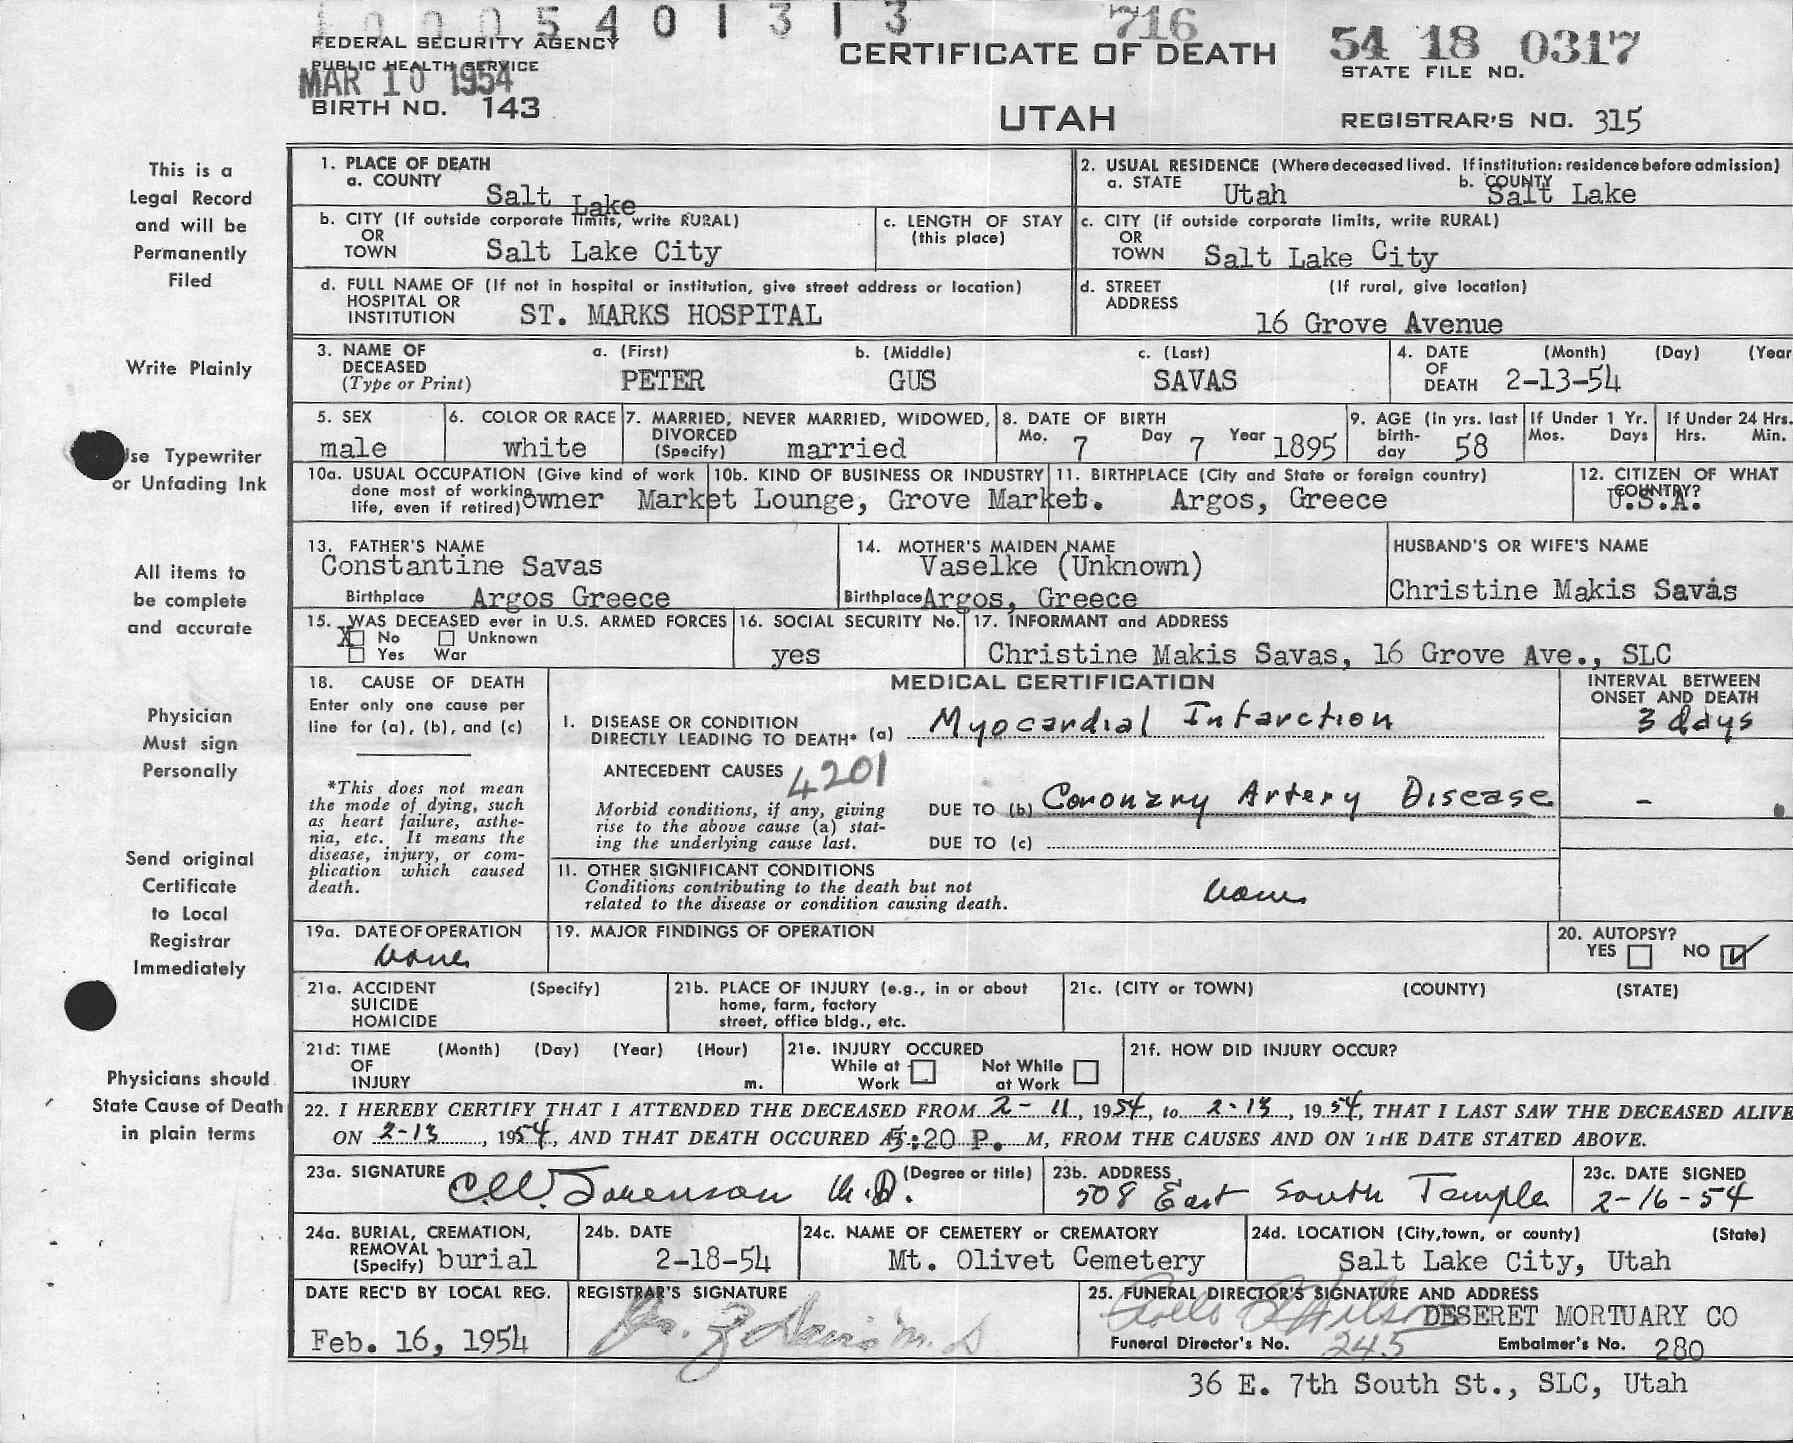 1 0 0 0 5 4 0 1 3 1 3
716
FEDERAL SECURITY AGENCY
PUBLIC HEALTH SERVICE
MAR 10 1954
BIRTH NO. 143
CERTIFICATE OF DEATH
UTAH
54 18 0317
STATE FILE NO.
REGISTRAR'S NO. 315
This is a
Legal Record
and will be
Permanently
Filed
Write Plainly
Use Typewriter
or Unfading Ink
All items to
be complete
and accurate
Physician
Must sign
Personally
Send original
Certificate
to Local
Registrar
Immediately
Physicians should
State Cause of Death
in plain terms
1. PLACE OF DEATH
a. COUNTY Salt Lake
2. USUAL RESIDENCE (Where deceased lived. If institution: residence before admission)
a. STATE Utah b. COUNTY Salt Lake
b. CITY (If outside corporate limits, write RURAL)
OR
TOWN Salt Lake City
c. LENGTH OF STAY
(this place)
c. CITY (if outside corporate limits, write RURAL)
OR
TOWN Salt Lake City
d. FULL NAME OF (If not in hospital or institution, give street address or location)
HOSPITAL OR
INSTITUTION ST. MARKS HOSPITAL
d. STREET (If rural, give location)
ADDRESS
16 Grove Avenue
3. NAME OF DECEASED (Type or Print)
a. (First) b. (Middle) c. (Last)
PETER GUS SAVAS
4. DATE (Month) (Day) (Year
OF
DEATH 2-13-54
5. SEX
male
6. COLOR OR RACE
white
7. MARRIED, NEVER MARRIED, WIDOWED,
DIVORCED
(Specify) married
8. DATE OF BIRTH
Mo. 7 Day 7 Year 1895
9. AGE (in yrs. last
birth-
day 58
If Under 1 Yr.
Mos. Days
If Under 24 Hrs.
Hrs. Min.
10a. USUAL OCCUPATION (Give kind of work
done most of working
life, even if retired) owner
10b. KIND OF BUSINESS OR INDUSTRY
Market Lounge, Grove Market.
11. BIRTHPLACE (City and State or foreign country)
Argos, Greece
12. CITIZEN OF WHAT
COUNTRY?
U.S.A.
13. FATHER'S NAME
Constantine Savas
Birthplace Argos Greece
14. MOTHER'S MAIDEN NAME
Vaselke (Unknown)
Birthplace Argos, Greece
HUSBAND'S OR WIFE'S NAME
Christine Makis Savas
15. WAS DECEASED ever in U.S. ARMED FORCES
X No Unknown
Yes War
16. SOCIAL SECURITY No.
yes
17. INFORMANT and ADDRESS
Christine Makis Savas, 16 Grove Ave., SLC
18. CAUSE OF DEATH
Enter only one cause per
line for (a), (b), and (c)
*This does not mean
the mode of dying, such
as heart failure, asthe-
nia, etc. It means the
disease, injury, or com-
plication which caused
death.
MEDICAL CERTIFICATION
INTERVAL BETWEEN
ONSET AND DEATH
I. DISEASE OR CONDITION
DIRECTLY LEADING TO DEATH* (a) Myocardial Infarction
3 days
ANTECEDENT CAUSES 4201
Morbid conditions, if any, giving
rise to the above cause (a) stat-
ing the underlying cause last.
DUE TO (b) Coronary Artery Disease
-
DUE TO (c)
11. OTHER SIGNIFICANT CONDITIONS
Conditions contributing to the death but not
related to the disease or condition causing death.
none
19a. DATE OF OPERATION
none
19. MAJOR FINDINGS OF OPERATION
20. AUTOPSY?
YES NO
21a. ACCIDENT (Specify)
SUICIDE
HOMICIDE
21b. PLACE OF INJURY (e.g., in or about
home, farm, factory
street, office bldg., etc.
21c. (CITY or TOWN) (COUNTY) (STATE)
21d: TIME (Month) (Day) (Year) (Hour)
OF
INJURY m.
21e. INJURY OCCURED
While at Work Not While at Work
21f. HOW DID INJURY OCCUR?
22. I HEREBY CERTIFY THAT I ATTENDED THE DECEASED FROM 2-11, 1954, to 2-13, 1954, THAT I LAST SAW THE DECEASED ALIVE
ON 2-13, 1954, AND THAT DEATH OCCURED AT 5:20 P. M, FROM THE CAUSES AND ON THE DATE STATED ABOVE.
23a. SIGNATURE (Degree or title)
C.W. Sorenson M.D.
23b. ADDRESS
508 East South Temple
23c. DATE SIGNED
2-16-54
24a. BURIAL, CREMATION,
REMOVAL
(Specify) burial
24b. DATE
2-18-54
24c. NAME OF CEMETERY or CREMATORY
Mt. Olivet Cemetery
24d. LOCATION (City, town, or county) (State)
Salt Lake City, Utah
DATE REC'D BY LOCAL REG.
Feb. 16, 1954
REGISTRAR'S SIGNATURE
25. FUNERAL DIRECTOR'S SIGNATURE AND ADDRESS
DESERET MORTUARY CO
Funeral Director's No. 245 Embalmer's No. 280
36 E. 7th South St., SLC, Utah